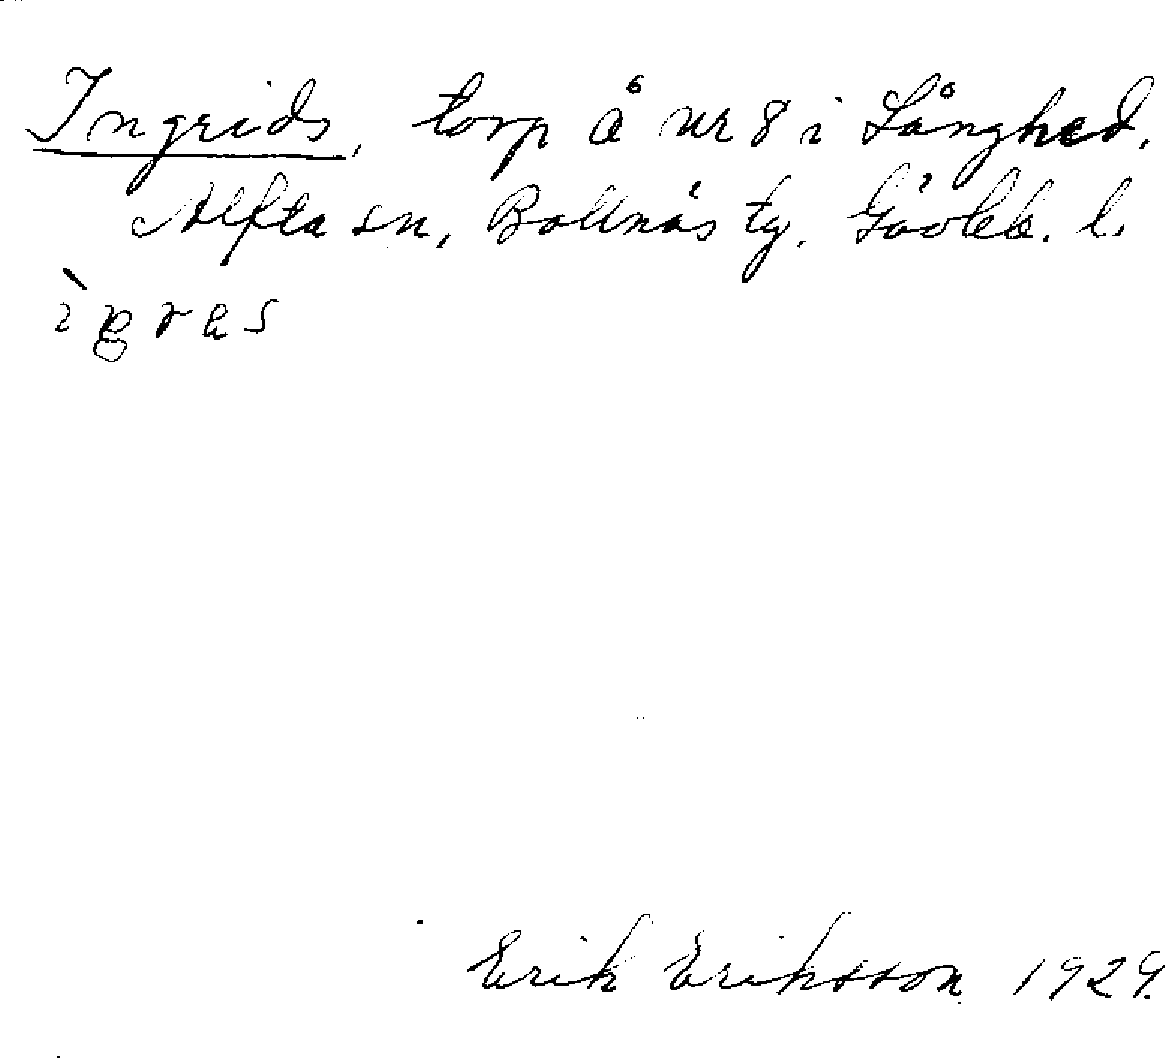 Ingrids, torp å nr 8 i Långhed,
Alfta sn, Bollnäs tg, Gävleb. l.
Erik Eriksson 1929.